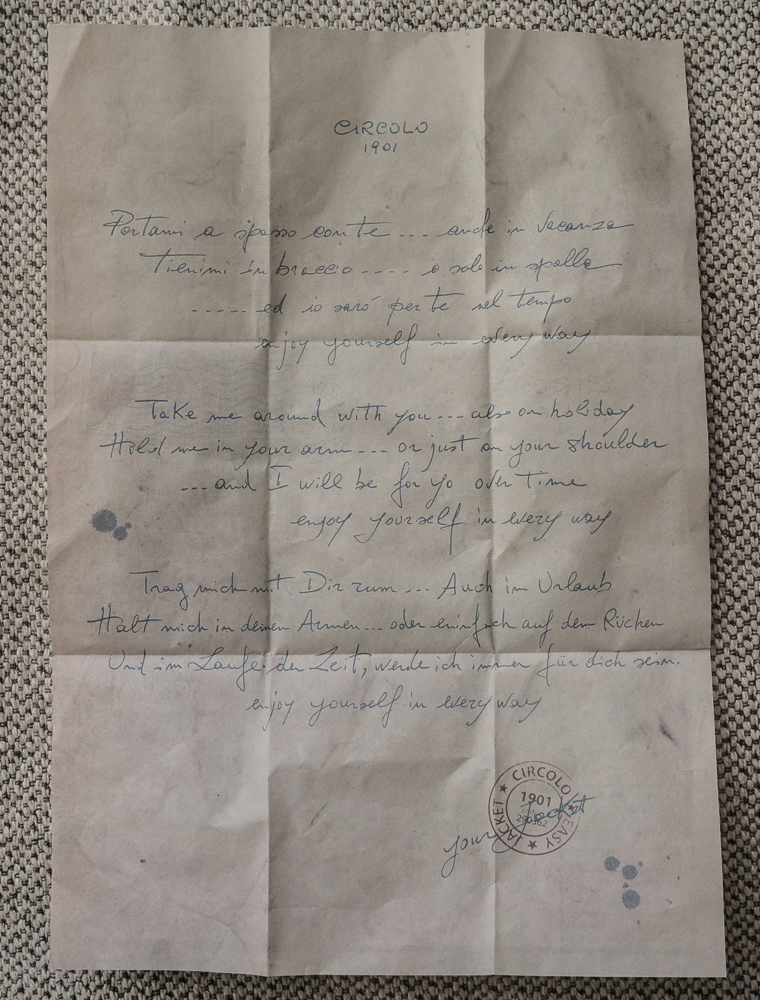 CIRCOLO
1901
Portami a spasso con te --- anche in vacanza
Tienimi in braccio ---- o solo in spalla
-----ed io sarò per te nel tempo
enjoy yourself in every way
Take me around with you --- also on holiday
Hold me in your arm --- or just on your shoulder
---and I will be for yo over time
enjoy yourself in every way
Trag mich mit Dir rum --- Auch im Urlaub
Halt mich in deinen Armen... oder einfach auf dem Rücken
Und im Laufe der Zeit, werde ich immer für dich sein.
enjoy yourself in every way
CIRCOLO ★ EASY ★ JACKET ★
1901
your Jacket